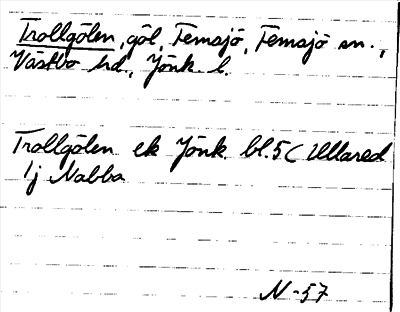 Trollgölen, göl, Femsjö, Femsjö sn.,
Västbo hd., Jönk. l.
Trollgölen ek Jönk. bl. 5 ( Ullared
1j Nabba
N -57